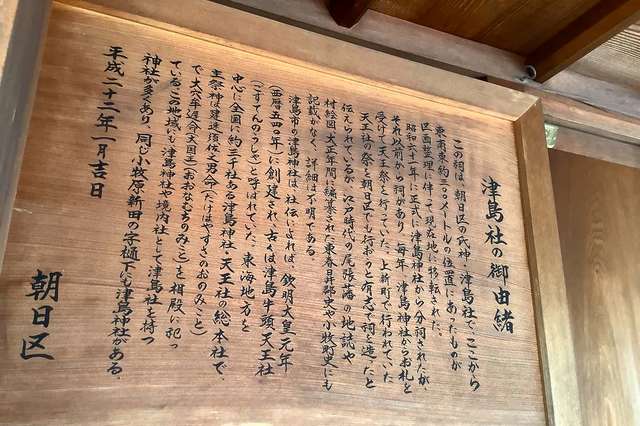 津島社の御由緒
この祠は、朝日区の氏神、津島社で、ここから
東南東約一〇〇メートルの位置にあったものが
区画整理に伴って現在地に移転された。
昭和六十一年に正式に津島神社から分祠されたが、
それ以前から祠があり、毎年、津島神社からお札を
受けて天王祭を行っていた。上新町で行われていた
天王社の祭を朝日区でも行おうと有志で祠を造ったと
伝えられているが、江戸時代の尾張藩の地誌や
村絵図、大正年間に編纂された東春日井郡史や小牧町史にも
記載がなく、詳細は不明である。
津島市の津島神社は、社伝によれば、欽明天皇元年
(西暦五四〇年)に創建され、古くは津島牛頭天王社
(ごずてんのうしゃ)と呼ばれていた。東海地方を
中心に全国に約三千社ある津島神社・天王社の総本社で、
主祭神は建速須佐之男命(たけはやすさのおのみこと)
で大穴牟遅命(大国主)(おおなむちのみこと)を相殿に祀っ
ているこの地域にも津島神社や境内社として津島社を持つ
神社が多くあり、同じ小牧原新田の字樋下にも津島神社がある。
平成二十二年一月吉日
朝日区